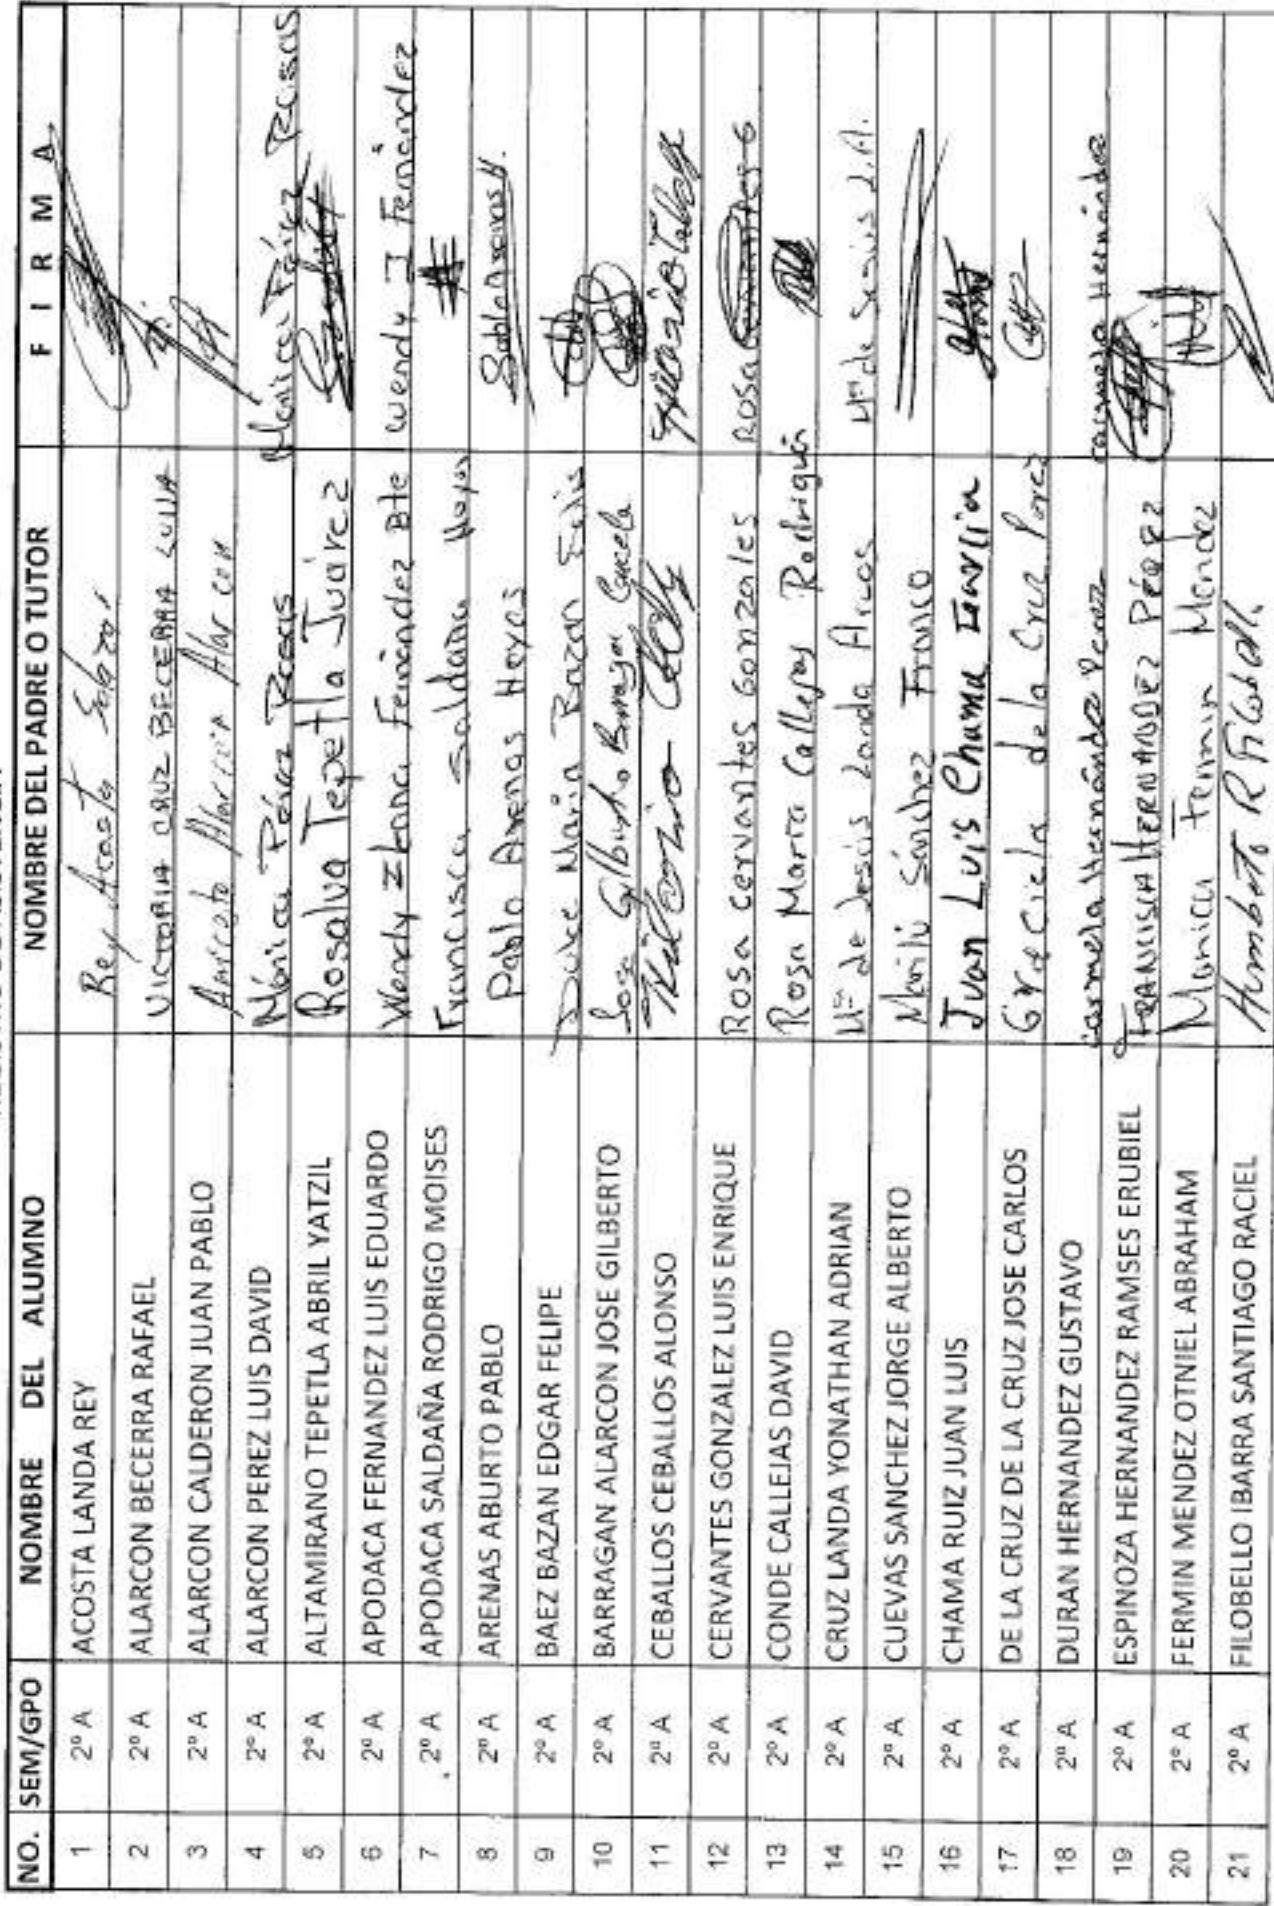 NO. SEM/GPO NOMBRE DEL ALUMNO NOMBRE DEL PADRE O TUTOR F I R M A
1 2º A ACOSTA LANDA REY Rey Acosta
2 2º A ALARCON BECERRA RAFAEL VICTORIA CRUZ BECERRA
3 2º A ALARCON CALDERON JUAN PABLO Alarcon
4 2º A ALARCON PEREZ LUIS DAVID Mónica Pérez Rosas Mónica Pérez Rosas
5 2º A ALTAMIRANO TEPETLA ABRIL YATZIL Rosalva Tepetla Juárez
6 2º A APODACA FERNANDEZ LUIS EDUARDO Wendy Fernández Wendy I Fernández
7 2º A APODACA SALDAÑA RODRIGO MOISES Francisca Saldaña Hoyos
8 2º A ARENAS ABURTO PABLO Pablo Arenas Hoyos
9 2º A BAEZ BAZAN EDGAR FELIPE Dulce Maria Bazan
10 2º A BARRAGAN ALARCON JOSE GILBERTO Jose Gilberto Barragan
11 2º A CEBALLOS CEBALLOS ALONSO
12 2º A CERVANTES GONZALEZ LUIS ENRIQUE Rosa cervantes Gonzales Rosa
13 2º A CONDE CALLEJAS DAVID Rosa Maria Callejas Rodriguez
14 2º A CRUZ LANDA YONATHAN ADRIAN Mª de Jesús Landa Arcos Mª de Jesús L.A.
15 2º A CUEVAS SANCHEZ JORGE ALBERTO Marilú Sánchez Franco
16 2º A CHAMA RUIZ JUAN LUIS Juan Luis Chama
17 2º A DE LA CRUZ DE LA CRUZ JOSE CARLOS Graciela de la Cruz Perez
18 2º A DURAN HERNANDEZ GUSTAVO Carmela Hernández Perez Carmela Hernández
19 2º A ESPINOZA HERNANDEZ RAMSES ERUBIEL FRANCISCA HERNANDEZ PÉREZ
20 2º A FERMIN MENDEZ OTNIEL ABRAHAM Monica Fermin Mendez
21 2º A FILOBELLO IBARRA SANTIAGO RACIEL Humberto R